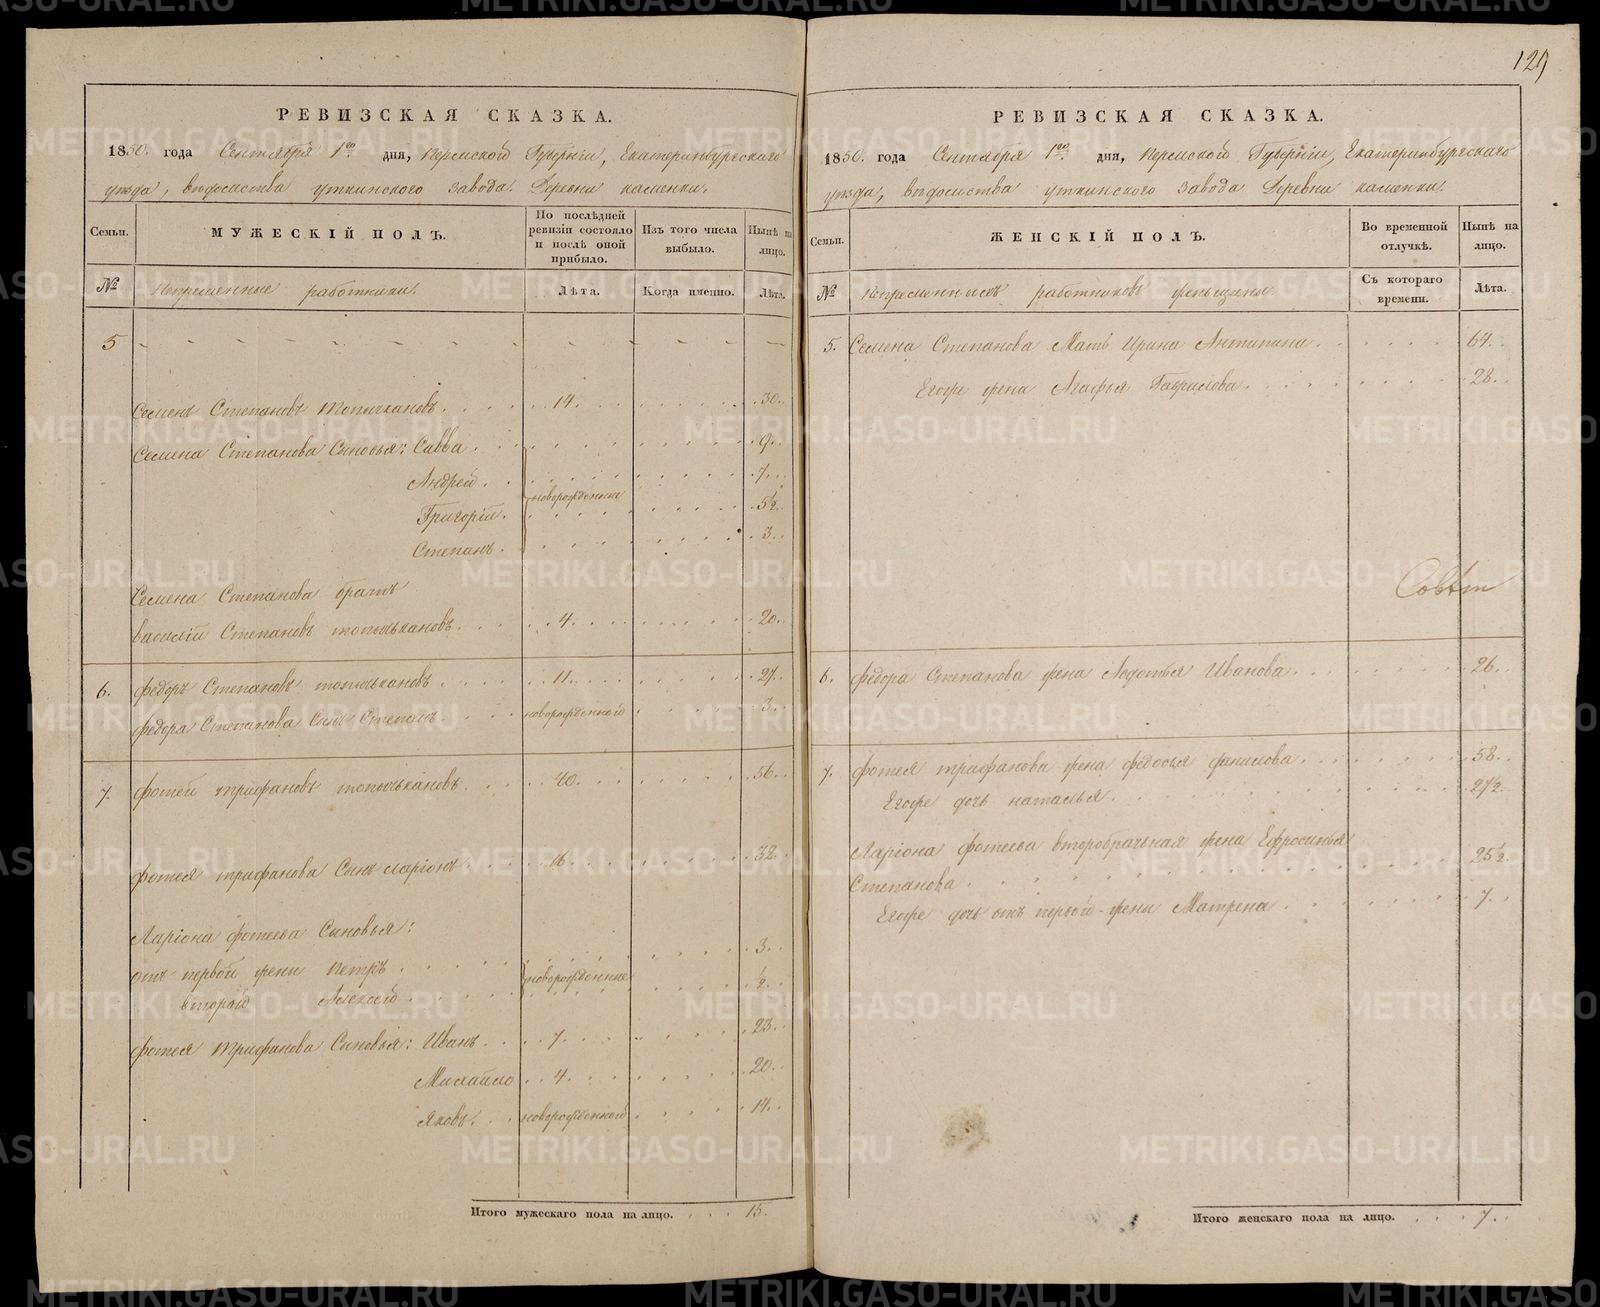 129
РЕВИЗСКАЯ СКАЗКА.
1850. года Сентября 1го. дня, Пермской Губернии, Екатеринбургскаго
уезда, ведомства уткинского завода. Деревни каменки.
Семьи.
МУЖЕСКІЙ ПОЛЪ.
По послѣдней ревизіи состояло и послѣ оной прибыло.
Изъ того числа выбыло.
Нынѣ на лицо.
№
Непременные работники.
Лѣта.
Когда именно.
Лѣта.
5
Семенъ Степановъ топычкановъ. 14. 30.
Семена Степанова Сыновья: Савва. 9.
Андрей. 7.
новорожденныя
Григорій. 5½
Степанъ. 3.
Семена Степанова братъ
василій Степановъ топычкановъ. 4. 20.
6. федоръ Степановъ топычкановъ. 11. 27.
федора Степанова Сынъ Степанъ. новорожденной 3.
7. фотей трифановъ топычкановъ. 40. 56.
фотея трифанова Сынъ ларіонъ. 16. 32.
Ларіона фотеева Сыновья:
отъ первой жены петръ. 3.
новорожденные
второй Алексей ½.
фотея трифанова Сыновья: Иванъ. 7. 23.
Михайло 4. 20.
Яковъ. новорожденной 14.
Итого мужескаго пола на лицо. 15.
РЕВИЗСКАЯ СКАЗКА.
1850. года Сентября 1го. дня, Пермской Губерніи, Екатеринбургскаго
уезда, ведомства уткинского завода Деревни каменки.
Семьи.
ЖЕНСКІЙ ПОЛЪ.
Во временной отлучкѣ.
Нынѣ на лицо.
№
Непременныхъ работниковъ женщины
Съ котораго времени.
Лѣта.
5. Семена Степанова Мать Ирина Антипина. 64.
Егоже жена Агафья Гаврилова. 28.
6. федора Степанова жена Авдотья Иванова. 26.
7. фотея трифанова жена федосья данилова. 58.
Егоже дочь наталья. 27½
Ларіона фотеева второбрачная жена Ефросинья
Степанова. 25½
Егоже дочь отъ первой жены Матрена. 7.
Итого женскаго пола на лицо. 7.
METRIKI.GASO-URAL.RU